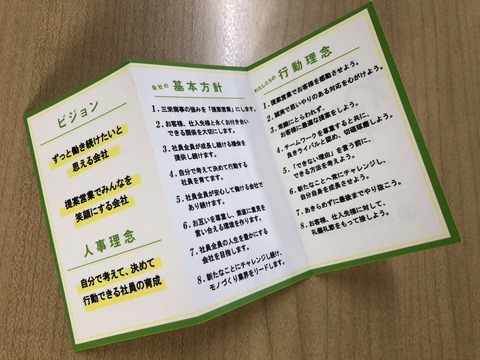 ビジョン
ずっと働き続けたいと
思える会社
提案営業でみんなを
笑顔にする会社
人事理念
自分で考えて、決めて
行動できる社員の育成
会社の 基本方針
1. 三栄商事の強みを「提案営業」にします。
2. お客様、仕入先様と永くお付き合い
できる関係を大切にします。
3. 社員全員が成長し続ける機会を
提供し続けます。
4. 自分で考えて決めて行動する
社員を育てます。
5. 社員全員が安心して働ける会社で
あり続けます。
6. お互いを尊重し、素直に意見を
言い合える環境を作ります。
7. 社員全員の人生を豊かにする
会社を目指します。
8. 新たなことにチャレンジし続け、
モノづくり業界をリードします。
わたしたちの 行動理念
1. 提案営業でお客様を感動させよう。
2. 誠実で思いやりのある対応を心がけよう。
3. 常識にとらわれず、
お客様に最適な提案をしよう。
4. チームワークを重視すると共に、
良きライバルと認め、切磋琢磨しよう。
5. 「できない理由」を言う前に、
できる方法を考えよう。
6. 新たなことへ常にチャレンジし、
自分自身を成長させよう。
7. あきらめずに最後までやり抜こう。
8. お客様、仕入先様に対して、
礼儀礼節をもって接しよう。